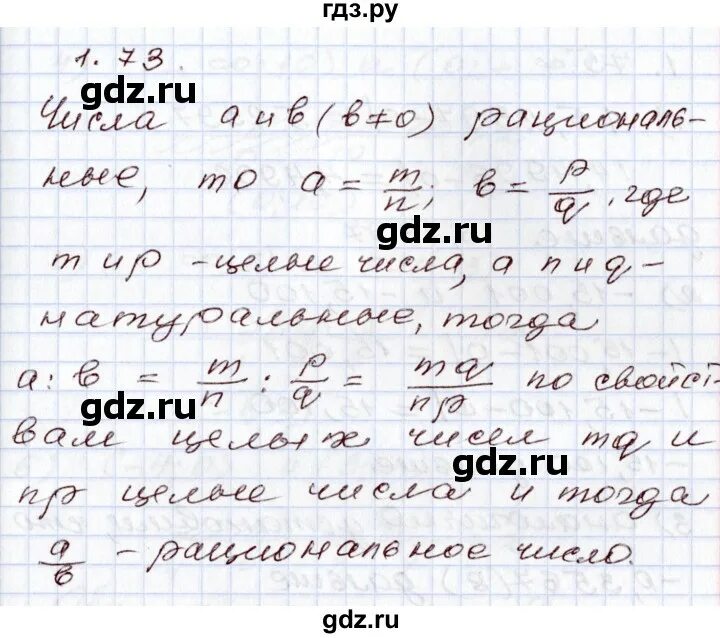 гдз.ру
1.73.
gdz.ru
gdz.ru
Числа a и b (b≠0) рациональ-
ные, то a = m/n; b = p/q, где
gdz.ru
m и p - целые числа, а n и q -
натуральные, тогда
a : b = m/n : p/q = mq/np по свойст-
gdz.ru
gdz.ru
вам целых чисел mq и
gdz.ru
gdz.ru
np целые числа и тогда
a/b - рациональное число.
gdz.ru
gdz.ru